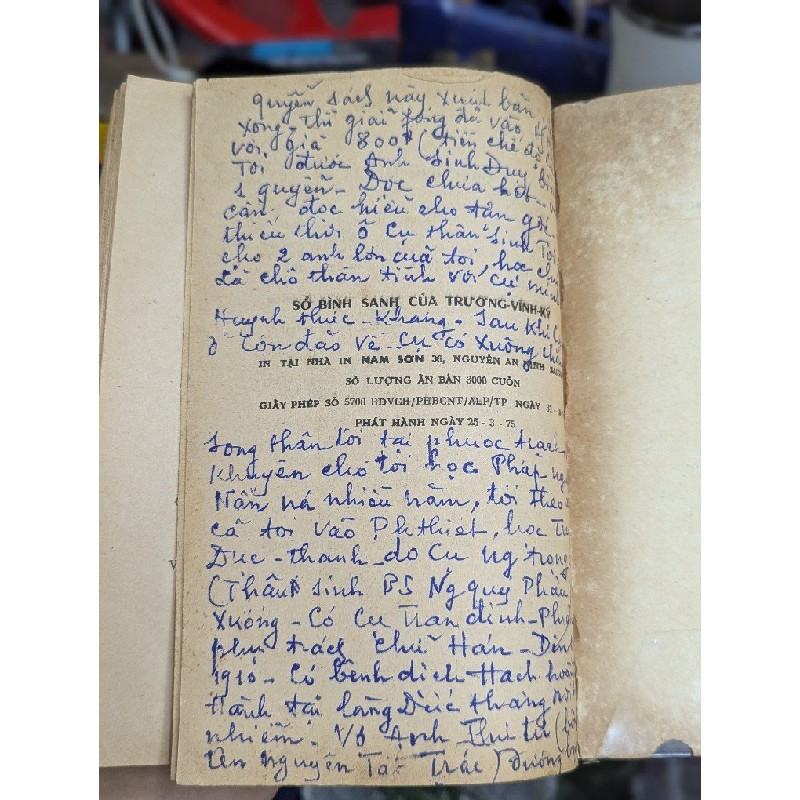 quyển sách này xuất bản
xong thì giải phóng đã vào
với giá 800đ (tiền chế độ
Tôi được Anh Sinh Duy
1 quyển - Đọc chưa hết
cần, đọc hiểu cho tấn
thiếu thời ở Cụ thân sinh Tôi
cho 2 anh lớn của tôi học
là chỗ thân tình với cụ
SỔ BÌNH SANH CỦA TRƯƠNG-VĨNH-KÝ
Huỳnh thúc-Kháng - Sau khi
ở Côn đảo về - Cụ có xuống
IN TẠI NHÀ IN NAM SƠN 36, NGUYỄN AN NINH
SỐ LƯỢNG ẤN BẢN 3000 CUỐN
GIẤY PHÉP SỐ 5701 BDVGH/PHBCNT/ALP/TP NGÀY
PHÁT HÀNH NGÀY 25 - 3 - 75
song thân tôi tại phước trạch
khuyên cho tôi học Pháp
Nấn ná nhiều năm, tôi theo
cả tôi vào Ph thiết, học
Dục-thanh do Cụ Ng trọng
(Thân sinh BS Ng quý Phầu
xướng - Có Cụ Trần đình-
phụ trách chữ Hán - Đến
1910 - Có bệnh dịch Hạch
hành tại làng Đức thắng
nhiễm. Vô Anh
tên nguyễn Tất Trác) đường